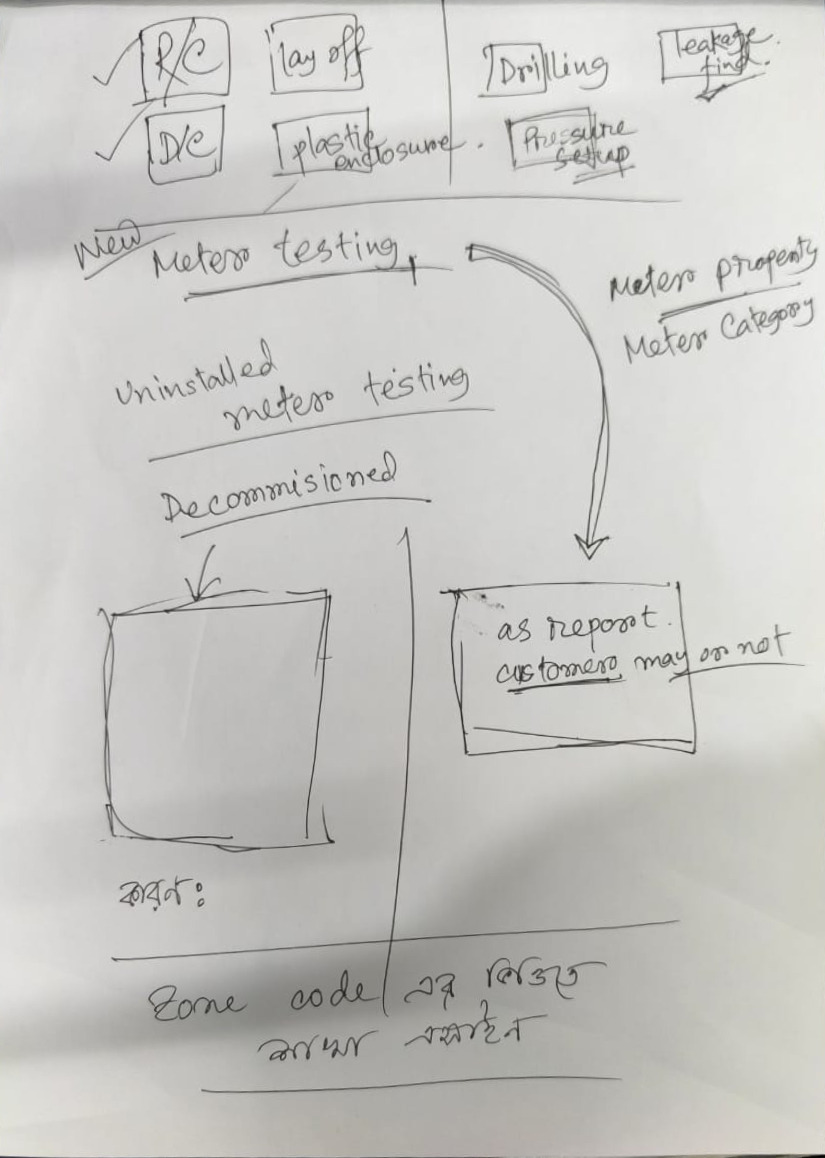 R/C
lay off
Drilling
leakage
find.
D/C
plastic
enclosure.
Pressure
Setup
New
Meter testing
Meter property
Meter Category
Uninstalled
meter testing
Decommisioned
as report.
customer may or not
কারণ:
Zone code এর ভিত্তিতে
শাখা এসাইন